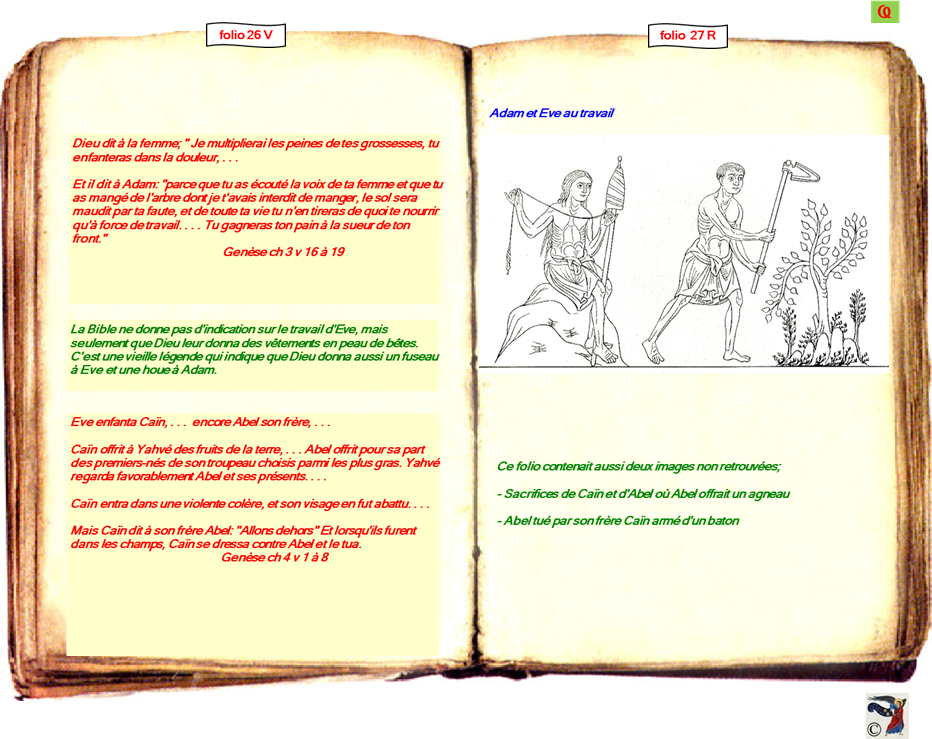 folio 26 V
Dieu dit à la femme; " Je multiplierai les peines de tes grossesses, tu
enfanteras dans la douleur, . . .
Et il dit à Adam: "parce que tu as écouté la voix de ta femme et que tu
as mangé de l'arbre dont je t'avais interdit de manger, le sol sera
maudit par ta faute, et de toute ta vie tu n'en tireras de quoi te nourrir
qu'à force de travail. . . . Tu gagneras ton pain à la sueur de ton
front."
Genèse ch 3 v 16 à 19
La Bible ne donne pas d'indication sur le travail d'Eve, mais
seulement que Dieu leur donna des vêtements en peau de bêtes.
C'est une vieille légende qui indique que Dieu donna aussi un fuseau
à Eve et une houe à Adam.
Eve enfanta Caïn, . . . encore Abel son frère, . . .
Caïn offrit à Yahvé des fruits de la terre, . . . Abel offrit pour sa part
des premiers-nés de son troupeau choisis parmi les plus gras. Yahvé
regarda favorablement Abel et ses présents. . . .
Caïn entra dans une violente colère, et son visage en fut abattu. . . .
Mais Caïn dit à son frère Abel: "Allons dehors" Et lorsqu'ils furent
dans les champs, Caïn se dressa contre Abel et le tua.
Genèse ch 4 v 1 à 8
folio 27 R
Adam et Eve au travail
Ce folio contenait aussi deux images non retrouvées;
- Sacrifices de Caïn et d'Abel où Abel offrait un agneau
- Abel tué par son frère Caïn armé d'un baton
©